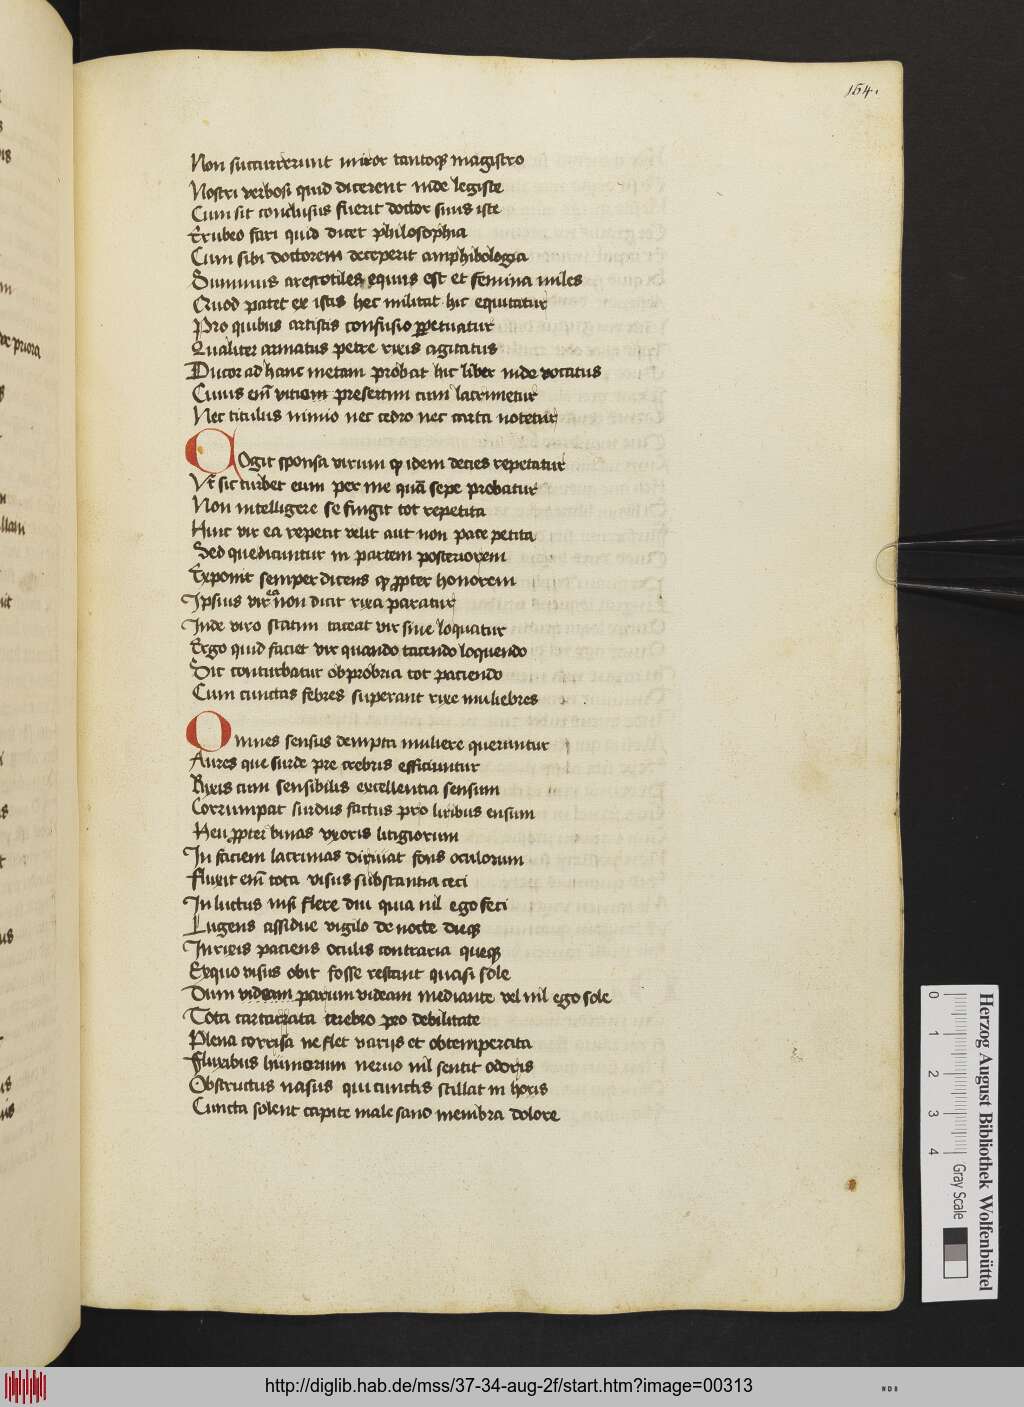 164.
Non succurrerunt miror tantoq magistro
Nostri verbosi quid dicerent inde legiste
Cum sit conclusus fuerit doctor suus iste
Erubeo fari quid dicet philosophia
Cum sibi doctorem deceperit amphibologia
Summus arestotiles equus est et femina miles
Quod patet ex istis hec militat hic equitatur
Pro quibus artistis confusio ppetuatur
Qualiter armatus petre rixis agitatus
Ducor ad hanc metam probat hic liber inde vocatus
Cuius em vitiam presertim cum lacrimetur
Nec titulus minio nec cedro nec carta notetur
Cogit sponsa virum q idem decies repetatur
Ut sic turbet eum per me qua sepe probatur
Non intelligere se fingit tot repetita
Hinc vir ea repetit velit aut non pate petita
Sed que dicuntur in partem posteriorem
Exponit semper dicens q ppter honorem
Ipsius vir non dicit rixa paratur
Inde viro statim taceat vir sive loquatur
Ergo quid faciet vir quando tacendo loquendo
Sic conturbatur obprobria tot paciendo
Cum cunctas febres superant rixe muliebres
Omnes sensus dempta muliere queruntur
Aures que surde pre crebris efficiuntur
Rixis cum sensibilis excellentia sensum
Corrumpat surdus factus pro litibus ensum
Heu ppter binas uxoris litigiorum
In faciem lacrimas diriuat fons oculorum
Fluxit em tota visus substantia ceci
In luctus nisi flere diu quia nil ego feci
Lugens assidue vigilo de nocte dieq
In rixis paciens oculis contraria queq
Exquo visus obit fosse restant quasi sole
Dum videam parum videam mediante vel nil ego sole
Tota cartarizata cerebro pro debilitate
Plena corrisa ne flet varijs et obtemperata
Fluxibus humorum neruo nil sentit odoris
Obstructus nasus qui cunctis stillat in horis
Cuncta solent capite male sano membra dolore
Herzog August Bibliothek Wolfenbüttel
0 1 2 3 4 Gray Scale
http://diglib.hab.de/mss/37-34-aug-2f/start.htm?image=00313